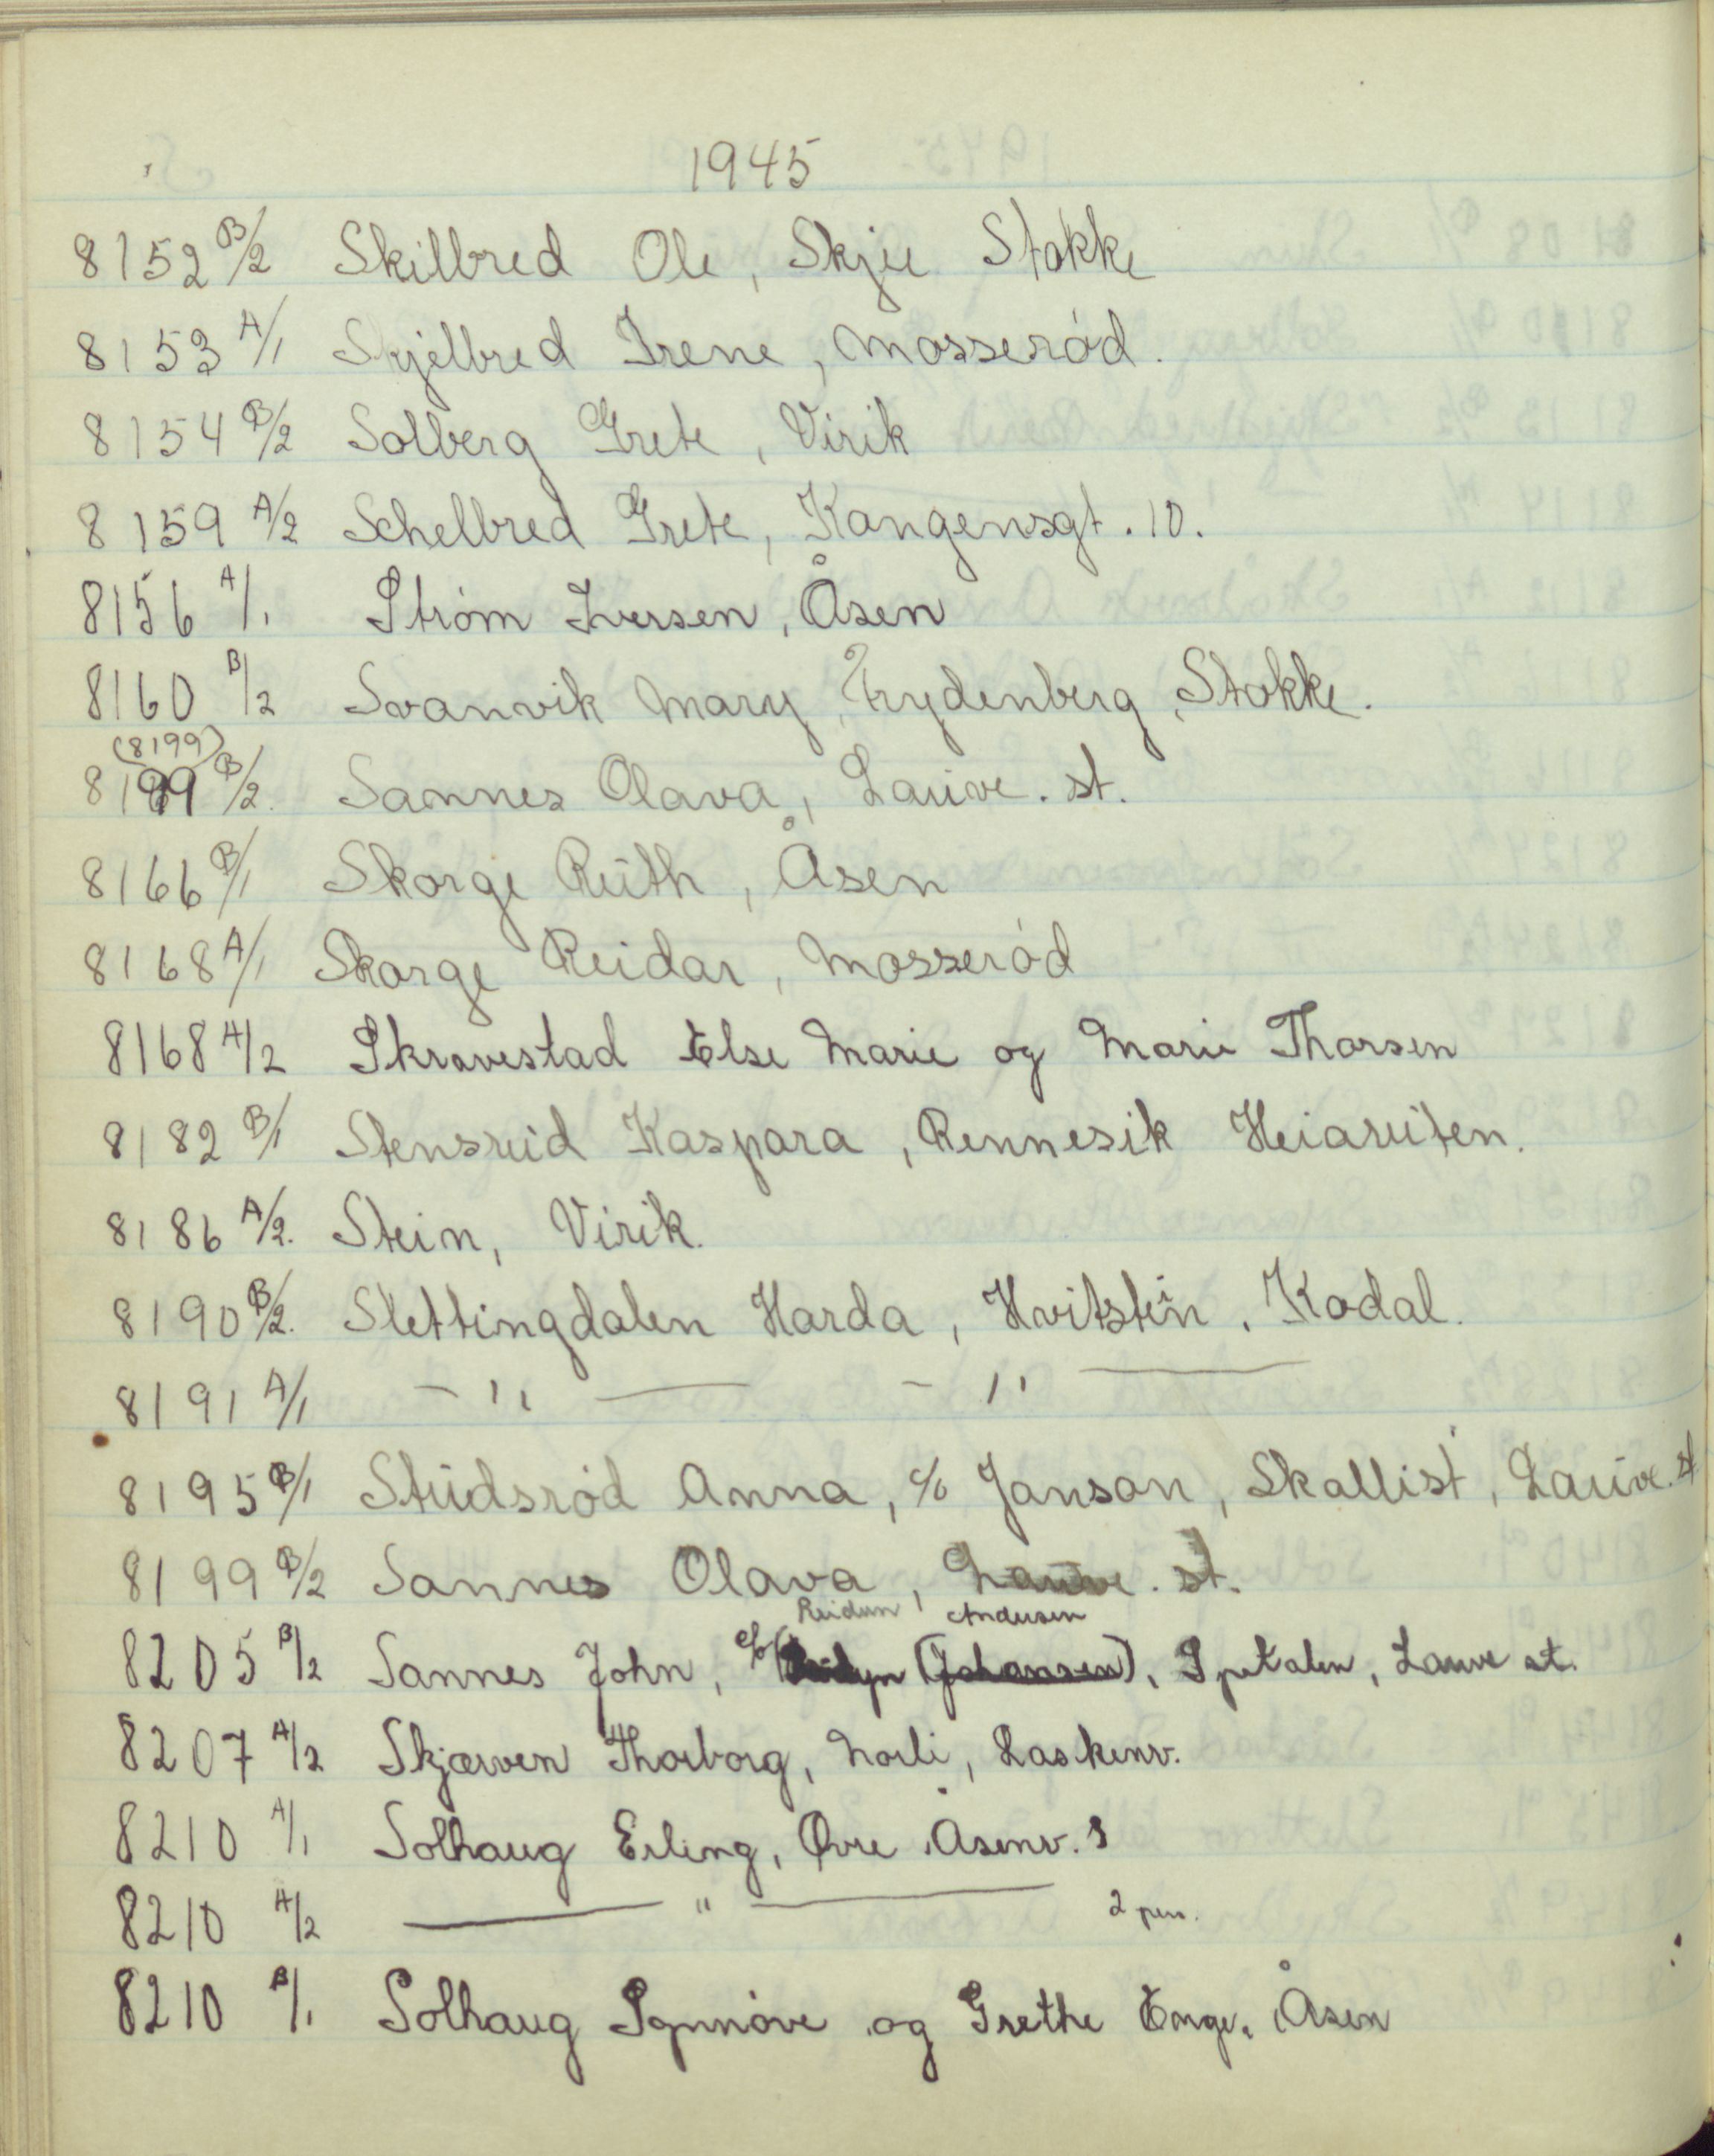 1945
8152 B/2 Skilbred Ole, Skjee Stokke
8153 A/1 Skjelbred Irene, Mosserød.
8154 B/2 Solberg Grete, Virik
8159 A/2 Schelbred Grete, Kongensgt. 10.
8156 A/1 Strøm Iversen, Åsen
8160 B/2 Svanvik Mary, Frydenberg, Stokke.
(8199)
8199 B/2. Sannes Olava, Lauve. st.
8166 B/1 Skorge Ruth, Åsen
8168 A/1 Skorge Reidar, Mosserød
8168 A/2 Skravestad Else Marie og Marie Thorsen
8182 B/1 Stensrud Kaspara, Rennesik Heiaruten.
8186 A/2. Stein, Virik.
8190 B/2. Slettingdalen Harda, Hvitstein, Kodal.
8191 A/1 — " — — " —
8195 B/1 Studsrød Anna, c/o Janson, Skallist, Lauve. st
8199 B/2 Sannes Olava, Lauve. st.
Reidun Andersen
8205 B/2 Sannes John, c/o (Johansen), Spetalen, Lauve st.
8207 A/2 Skjærven Thorborg, Norli, Laskenv.
8210 A/1 Solhaug Erling, Øvre Åsenv. 3
8210 A/2 — " — 2 pers.
8210 B/1 Solhaug Synnøve og Grethe Enge, Åsen